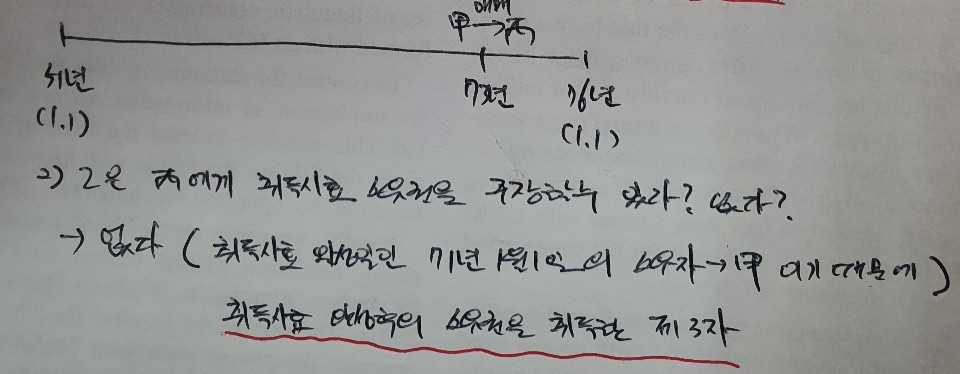 매매
甲→丙
51년 73년 76년
(1.1) (1.1)
2) 乙은 丙에게 취득시효 소유권을 주장할수 있다? 없다?
→ 없다 ( 취득시효 완성일인 71년 1월1일의 소유자→甲 이기 때문에)
취득시효 완성후의 소유권을 취득한 제3자